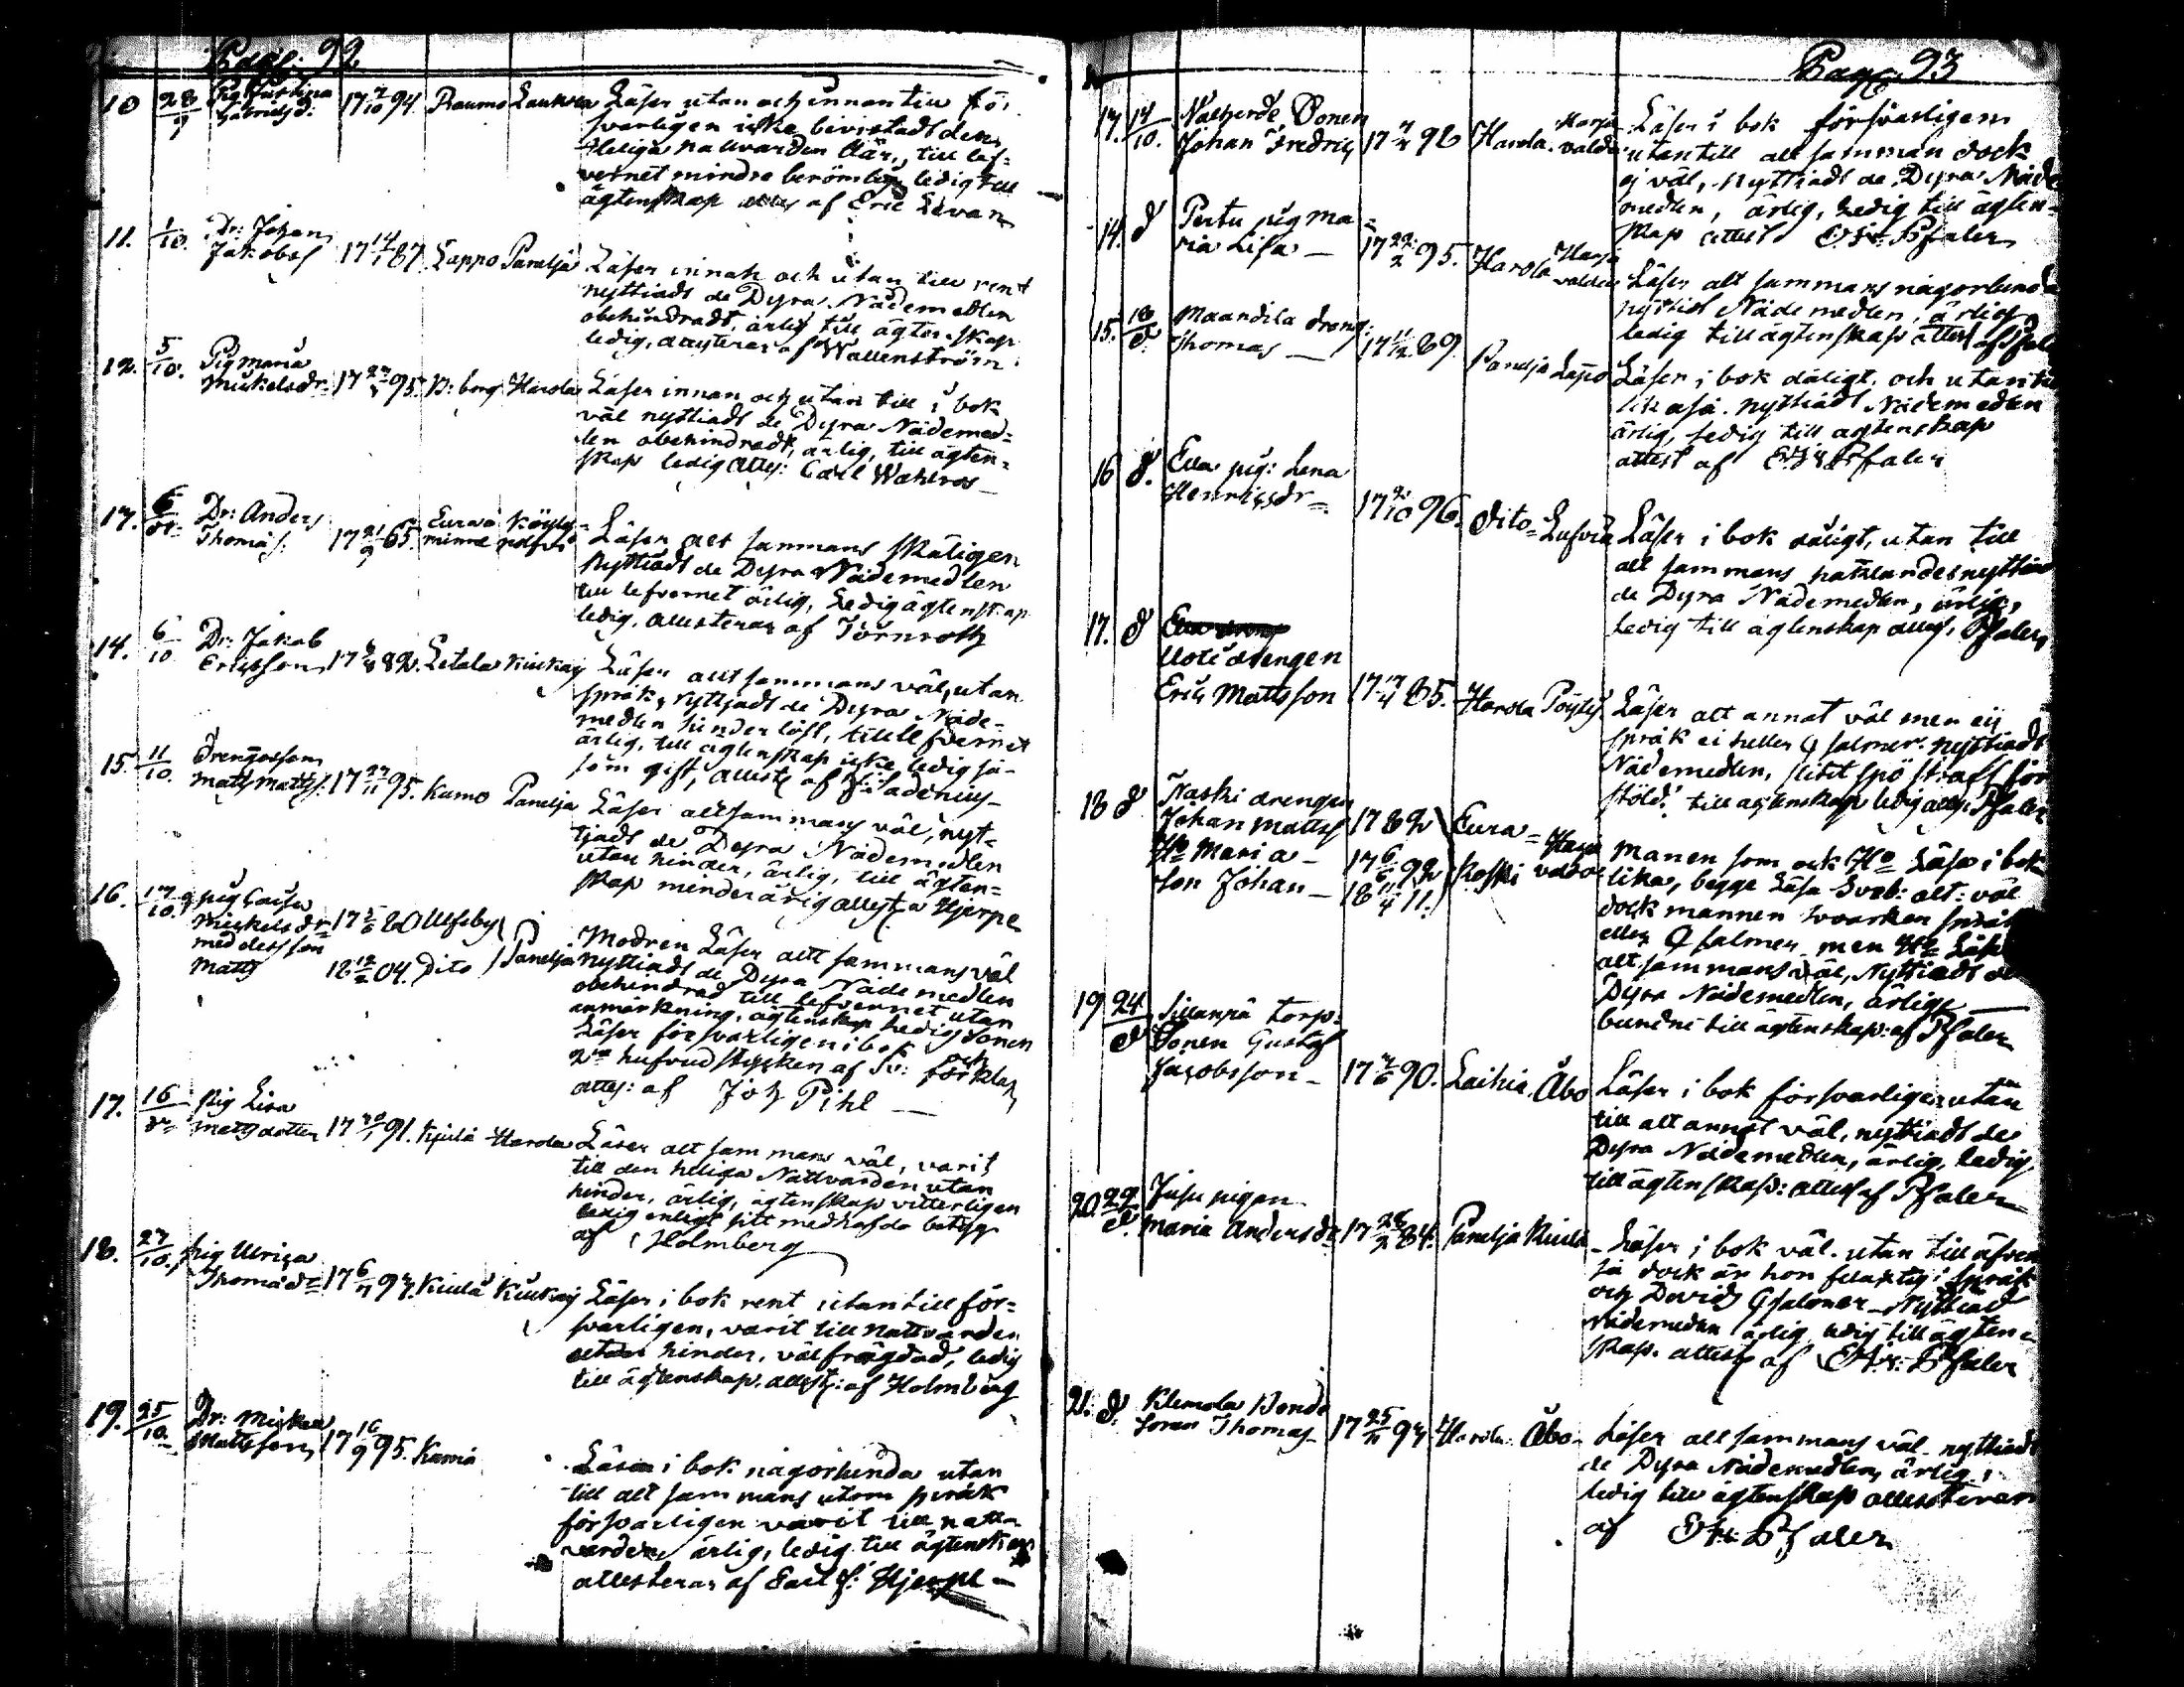 Pag: 92.
10 28/9 Pig Justina Gabrielsd: 17 7/10 94. Raumo Laukola Läser utan och innan till för-
svarligen icke bivistadt den
Heliga nattvarden här, till lef-
vernet mindre berömlig ledig till
ägtenskap attes af Eric Levan
11. 1/10. Dr: Johan Jakobss 17 14/1 87. Lappo Panelja Läser innan och utan till rent
nyttiadt de Dyra Nådemedlen
obehindradt, ärlig till ägtenskap
ledig, attesteras af Wallenström
12. 5/10. Pig Maria Mickelsdr 1795. B:borg Harola Läser innan och utan till i bok
väl nyttiadt de Dyra Nådemed=
len obehindradt, ärlig, till ägten=
skap ledig attes: Carl Wahlros
13. 6/dt Dr: Anders Thomas: 17 21/9 65. Eura Läser alt sammans skäligen
Nyttiadt de Dyra Nådemedlen
till lefvernet ärlig, Ledig ägtenskap
ledig, attesteras af Törnroth
14. 6/10 Dr: Jakob Ericsson 1782. Letala Kiukais Läser allt sammans väl, utan
språk, nyttjadt de Dyra Nåde=
medlen hinderlöst, till lefvernet
ärlig, till ägtenskap icke ledig så-
som gift, attest af F: Sadenius
15. 11/10. Drengosson Matts Mattss: 17 27/11 95. Kumo Panelja Läser alt sammans väl, nyt=
tjadt de Dyra Nådemedlen
utan hinder, ärlig, till ägten=
skap minderårig attest a Hjerpe
16. 17/10. pig Caisa Mickelsdr 1780 Ulfsby
med dess son Matts 18 12/2 04. Dito Panelja Modren Läser allt sammans väl
nyttiadt de Dyra Nåde medlen
obehindrad till lefvernet utan
anmärkning, ägtenskap ledig sonen
Läser försvarligen i bok och
2ne hufvudstycken af Sv: förklar
attes: af Joh Pihl
17. 16/dt pig Lisa Mattsdotter 17 20/1 91. Kjulå Harola Läser alt sammans väl, varit
till den heliga Nattvarden utan
hinder, ärlig, ägtenskap vitterligen
ledig enligt sitt medhafda betyg
af Holmberg
18. 27/10. pig Ulrica Thomasdr 17 Kiula Kiukais Läser i bok rent utan till för=
svarligen, varit till nattvarden
utan hinder, välfrägdad, ledig
till ägtenskap. attest: af Holmberg
19. 25/10. Dr: Mickel Mattsson 17 16/9 95. Kamiå Läser i bok någorlunda utan
till alt sammans utom språk
försvarligen varit till natt-
varden ärlig, ledig till ägtenskap
attesteras af Carl F: Hjerpe

Pag: 93
13. 14/10. Sonen Johan Fredric 17 Harola Harjavalda Läser i bok försvarligen
utantill alt samman dock
ej väl, Nyttiadt de Dyra Nåde
medlen, ärlig, Ledig till ägten-
skap attest Pfaler
14. d Perttu pig Maria Lisa 17 22/2 95. Harola Harjavalden Läser alt sammans någorlunda
nyttiat Nåde medlen, ärlig
ledig till ägtenskap attest af Pfaler
15. 18/d Maandila dreng: Thomas 17 11/12 89. Panelja Lapo Läser i bok dåligt och utantill
lika så. nyttiadt Nådemedlen
ärlig, ledig till ägtenskap
attest af Pfaler
16 d. Eua pig: Lena Henricsdr 17 96. dito Lufvia Läser i bok dåligt, utan till
alt sammans nyttiad
de Dyra Nådemedlen, ärlig,
ledig till ägtenskap attest. Pfaler
17. d Uoti drengen
Eric Mattsson 17 17/4 85. Harola Pöytis Läser alt annat väl men ej
språk ei heller Psalmer. nyttiadt
Nådemedlen, slitit spö straff för
stöld, till ägtenskap ledig attes. Pfaler
18 d Naski drengen
Johan Mattss 1782 Eura
Ho Maria 17 6/6 92
son Johan 18 11/4 11. Manen som ock Ho Läser i bok
lika, begge Läsa Sveb: alt: väl
dock mannen hvarken språk
eller Psalmer men Ho Läser
alt sammans väl, Nyttiadt de
Dyra Nådemedlen, ärlige
bundne till ägtenskap: af Pfaler
19 24/d Sillanpä torp:
Sonen Gustaf
Jacobsson 17 90. Laihia. Åbo Läser i bok försvarligen utan
till alt annat väl, nyttiadt de
Dyra Nådemedlen, ärlig, ledig,
till ägtenskap: attest af Pfaler
20. 29/d. Jusu pigan
Maria Andersdr 17 26/2 84. Panelja Kiula Läser i bok väl. utan till äfven
så dock är hon felaktig i språk
och Davids Psalmer Nyttiad
Nådemedlen ärlig, ledig till ägten=
skap. attest af Pfaler
21. d. Klemola Bonde
sonen Thomas 17 25/11 Harola. Åbo Läser alt sammans väl. nyttiadt
de Dyra Nådemedlen, ärlig,
ledig till ägtenskap attesteras
af Pfaler